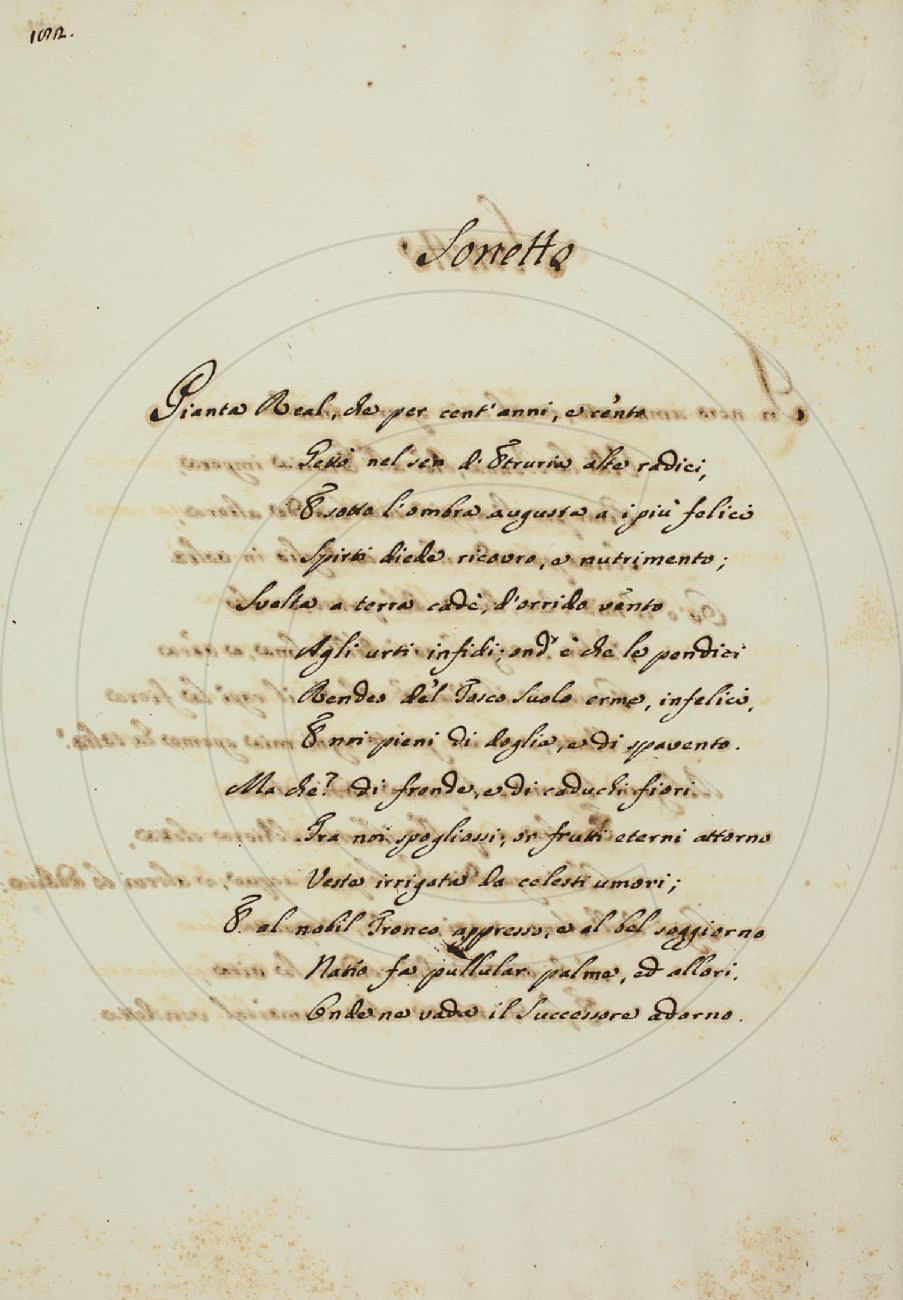 182.
Sonetto
Pianta Real, che per cent'anni, e cento
Gettò nel sen d'Etruria alte radici,
E sotto l'ombra augusta a i più felici
Spirti diede ricovro, e nutrimento;
Svelta a terra cadè, d'orrido vento
Agli urti infidi; ond'è che le pendici
Rende del Tosco Suolo erme, infelici,
E noi pieni di doglia, e di spavento.
Ma che? di fronde, e di caduchi fiori
Tra noi spogliossi; or frutti eterni attorno
Veste irrigata da celesti umori;
E al nobil Tronco appresso, e al bel soggiorno
Natio fa pullular palme, ed allori,
Onde ne vada il Successore adorno.